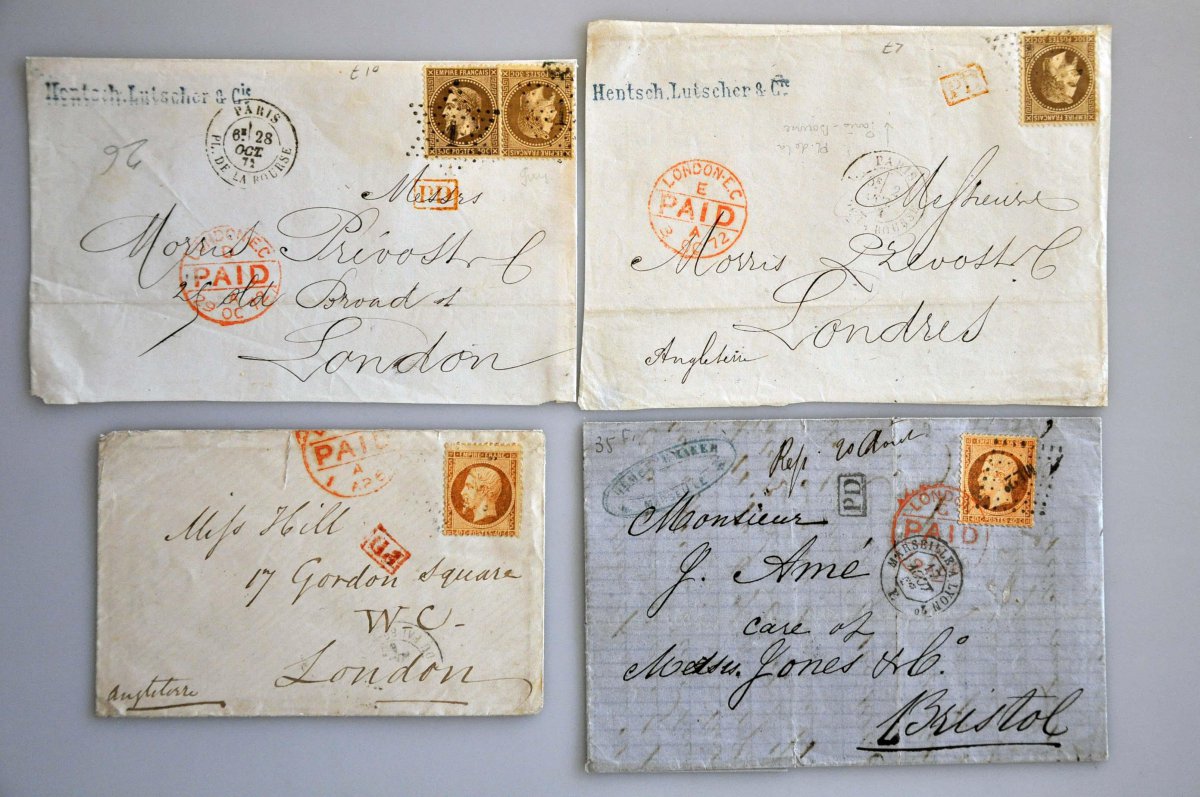 Hentsch.Lutscher & Cie
£10
26
PARIS
6E 28
OCT
PL. DE LA BOURSE
EMPIRE FRANÇAIS
PD
Messrs
Morris Prévost & C
LONDON-E.C
PAID
29
OC
25 Old Broad st
London
Hentsch.Lutscher & Cie
£7
PD
EMPIRE FRANÇAIS
Pl de la
LONDON-E.C
E
PAID
A
2 OC 72
PARIS
Messieurs
Morris Prevost & C
Londres
Angleterre
PAID
A
EMPIRE FRANC
Miss Hill
PD
17 Gordon Square
W.C.
London
Angleterre
35 F
Rep. 20 Aout
PD
LONDON
PAID
MARSEILLE A LYON 2°
Monsieur
J. Amé
care of
Messrs. Jones & Co
Bristol